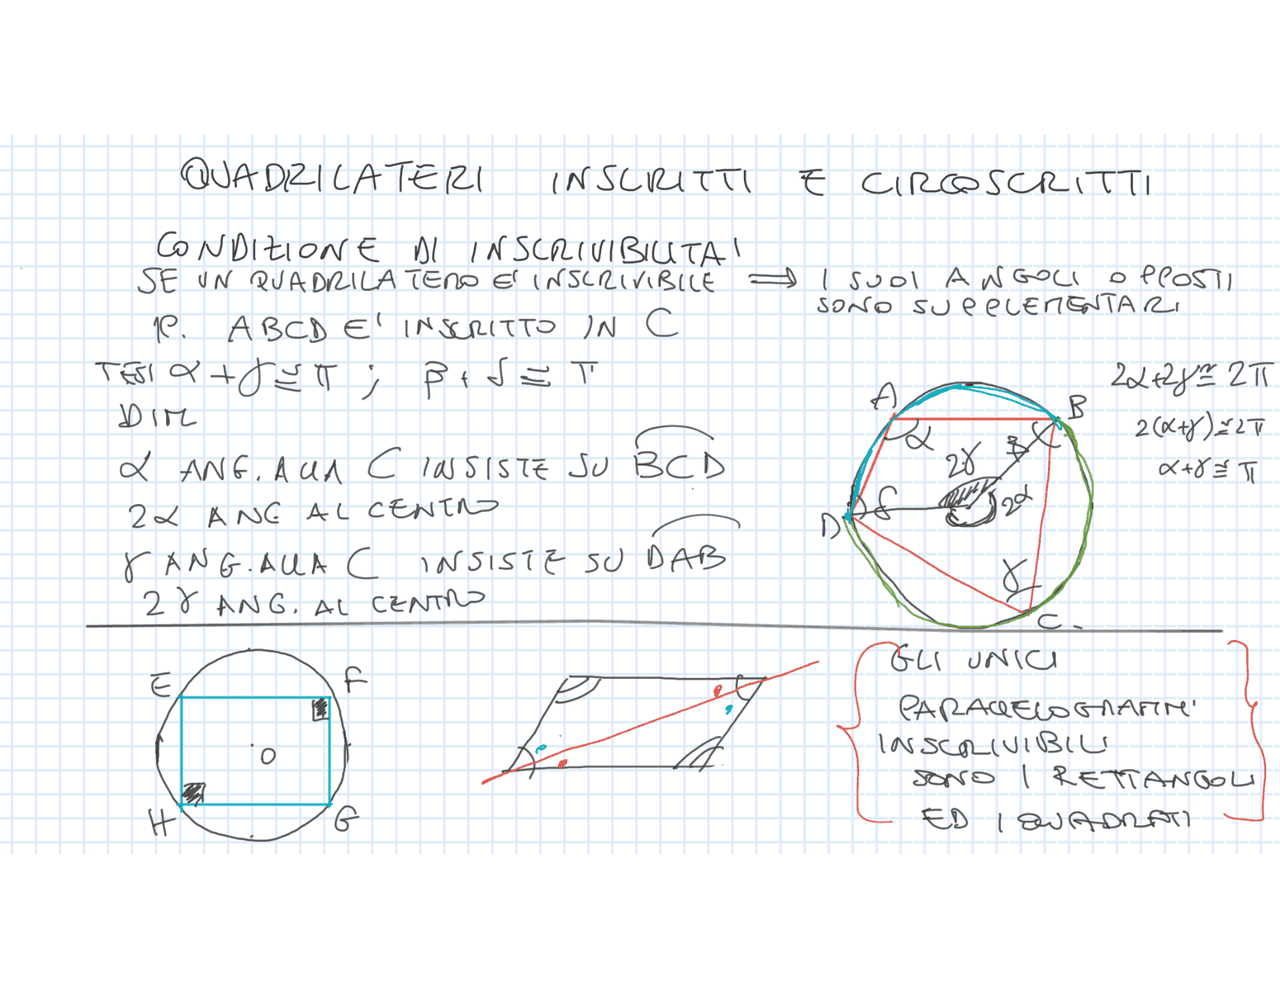 QUADRILATERI INSCRITTI E CIRCOSCRITTI
CONDIZIONE DI INSCRIVIBILITA'
SE UN QUADRILATERO E' INSCRIVIBILE ⟹ I SUOI ANGOLI OPPOSTI
SONO SUPPLEMENTARI
IP. ABCD E' INSCRITTO IN C
TESI α + γ ≅ π ; β + δ ≅ π
DIM
α ANG. ALLA C INSISTE SU BCD
2α ANG AL CENTRO
γ ANG. ALLA C INSISTE SU DAB
2γ ANG. AL CENTRO
A
B
α
β
2γ
2α
D
δ
γ
C
2α+2γ ≅ 2π
2(α+γ) ≅ 2π
α+γ ≅ π
E
F
O
H
G
GLI UNICI
PARALLELOGRAMMI
INSCRIVIBILI
SONO I RETTANGOLI
ED I QUADRATI